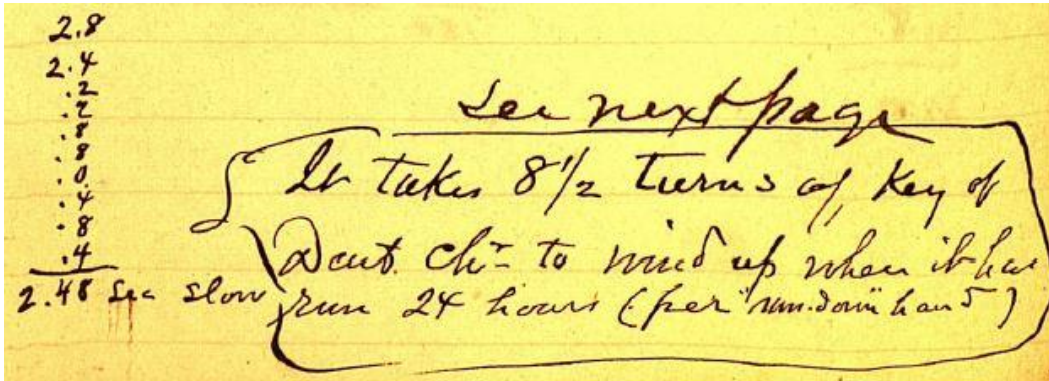 2.8
2.4
.2
.2
.8
.8
.0
.4
.8
.4
2.48 sec slow
see next page
It takes 8 1/2 turns of key of
Dent. chr to wind up when it has
run 24 hours (per "run-down" hand)